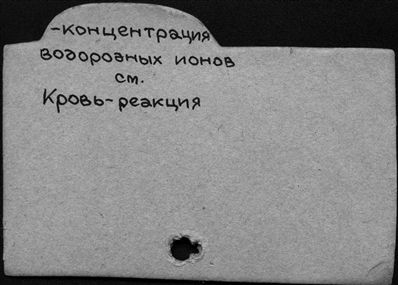 -концентрация
водородных ионов
см.
Кровь-реакция